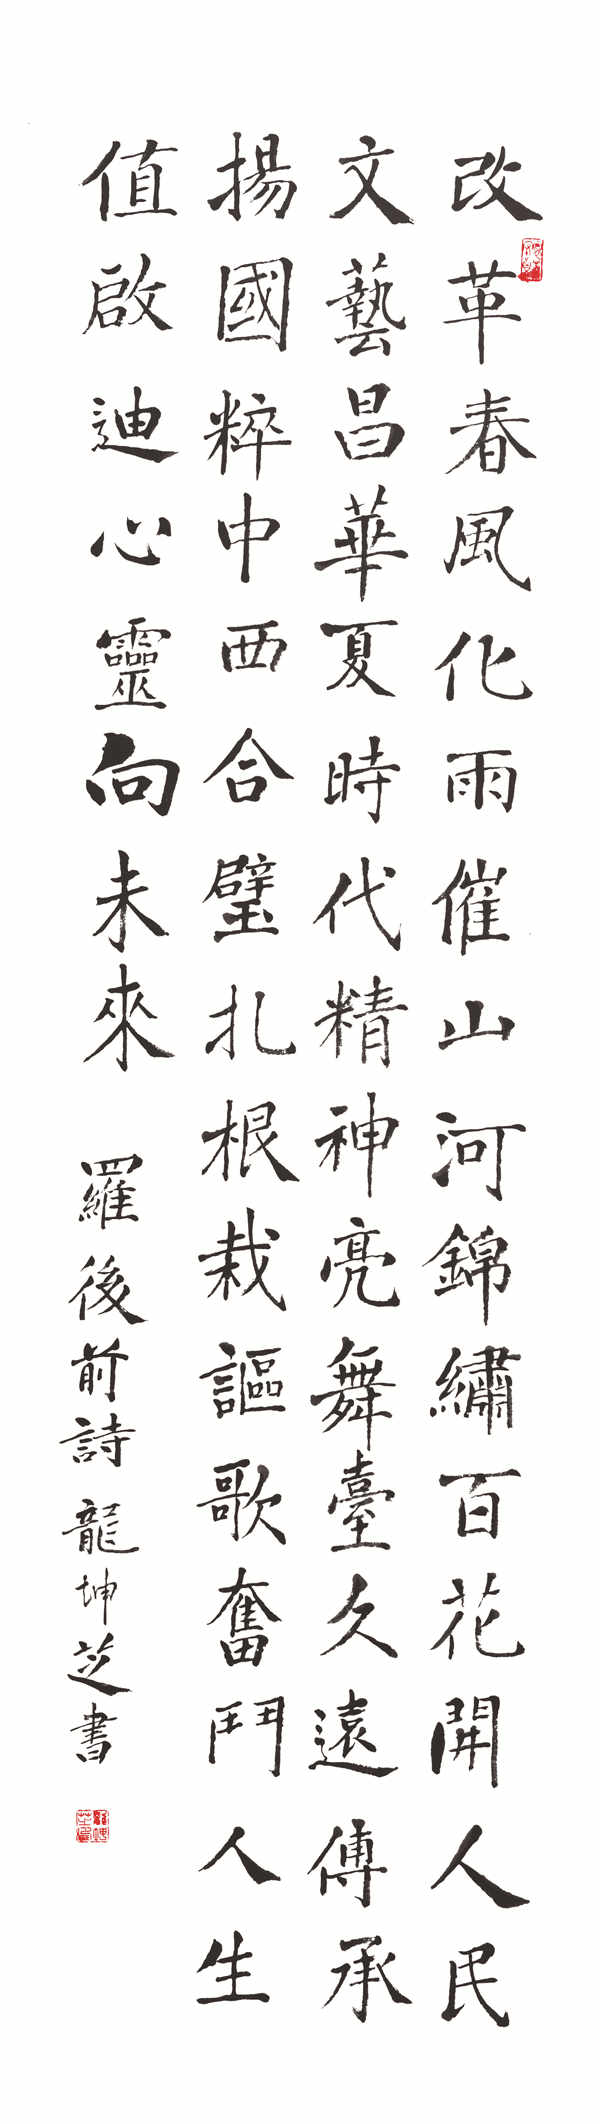 改革春風化雨催山河錦繡百花開人民
文藝昌華夏時代精神亮舞臺久遠傳承
揚國粹中西合璧扎根栽謳歌奮鬥人生
值啟迪心靈向未來
羅後前詩龍坤芝書